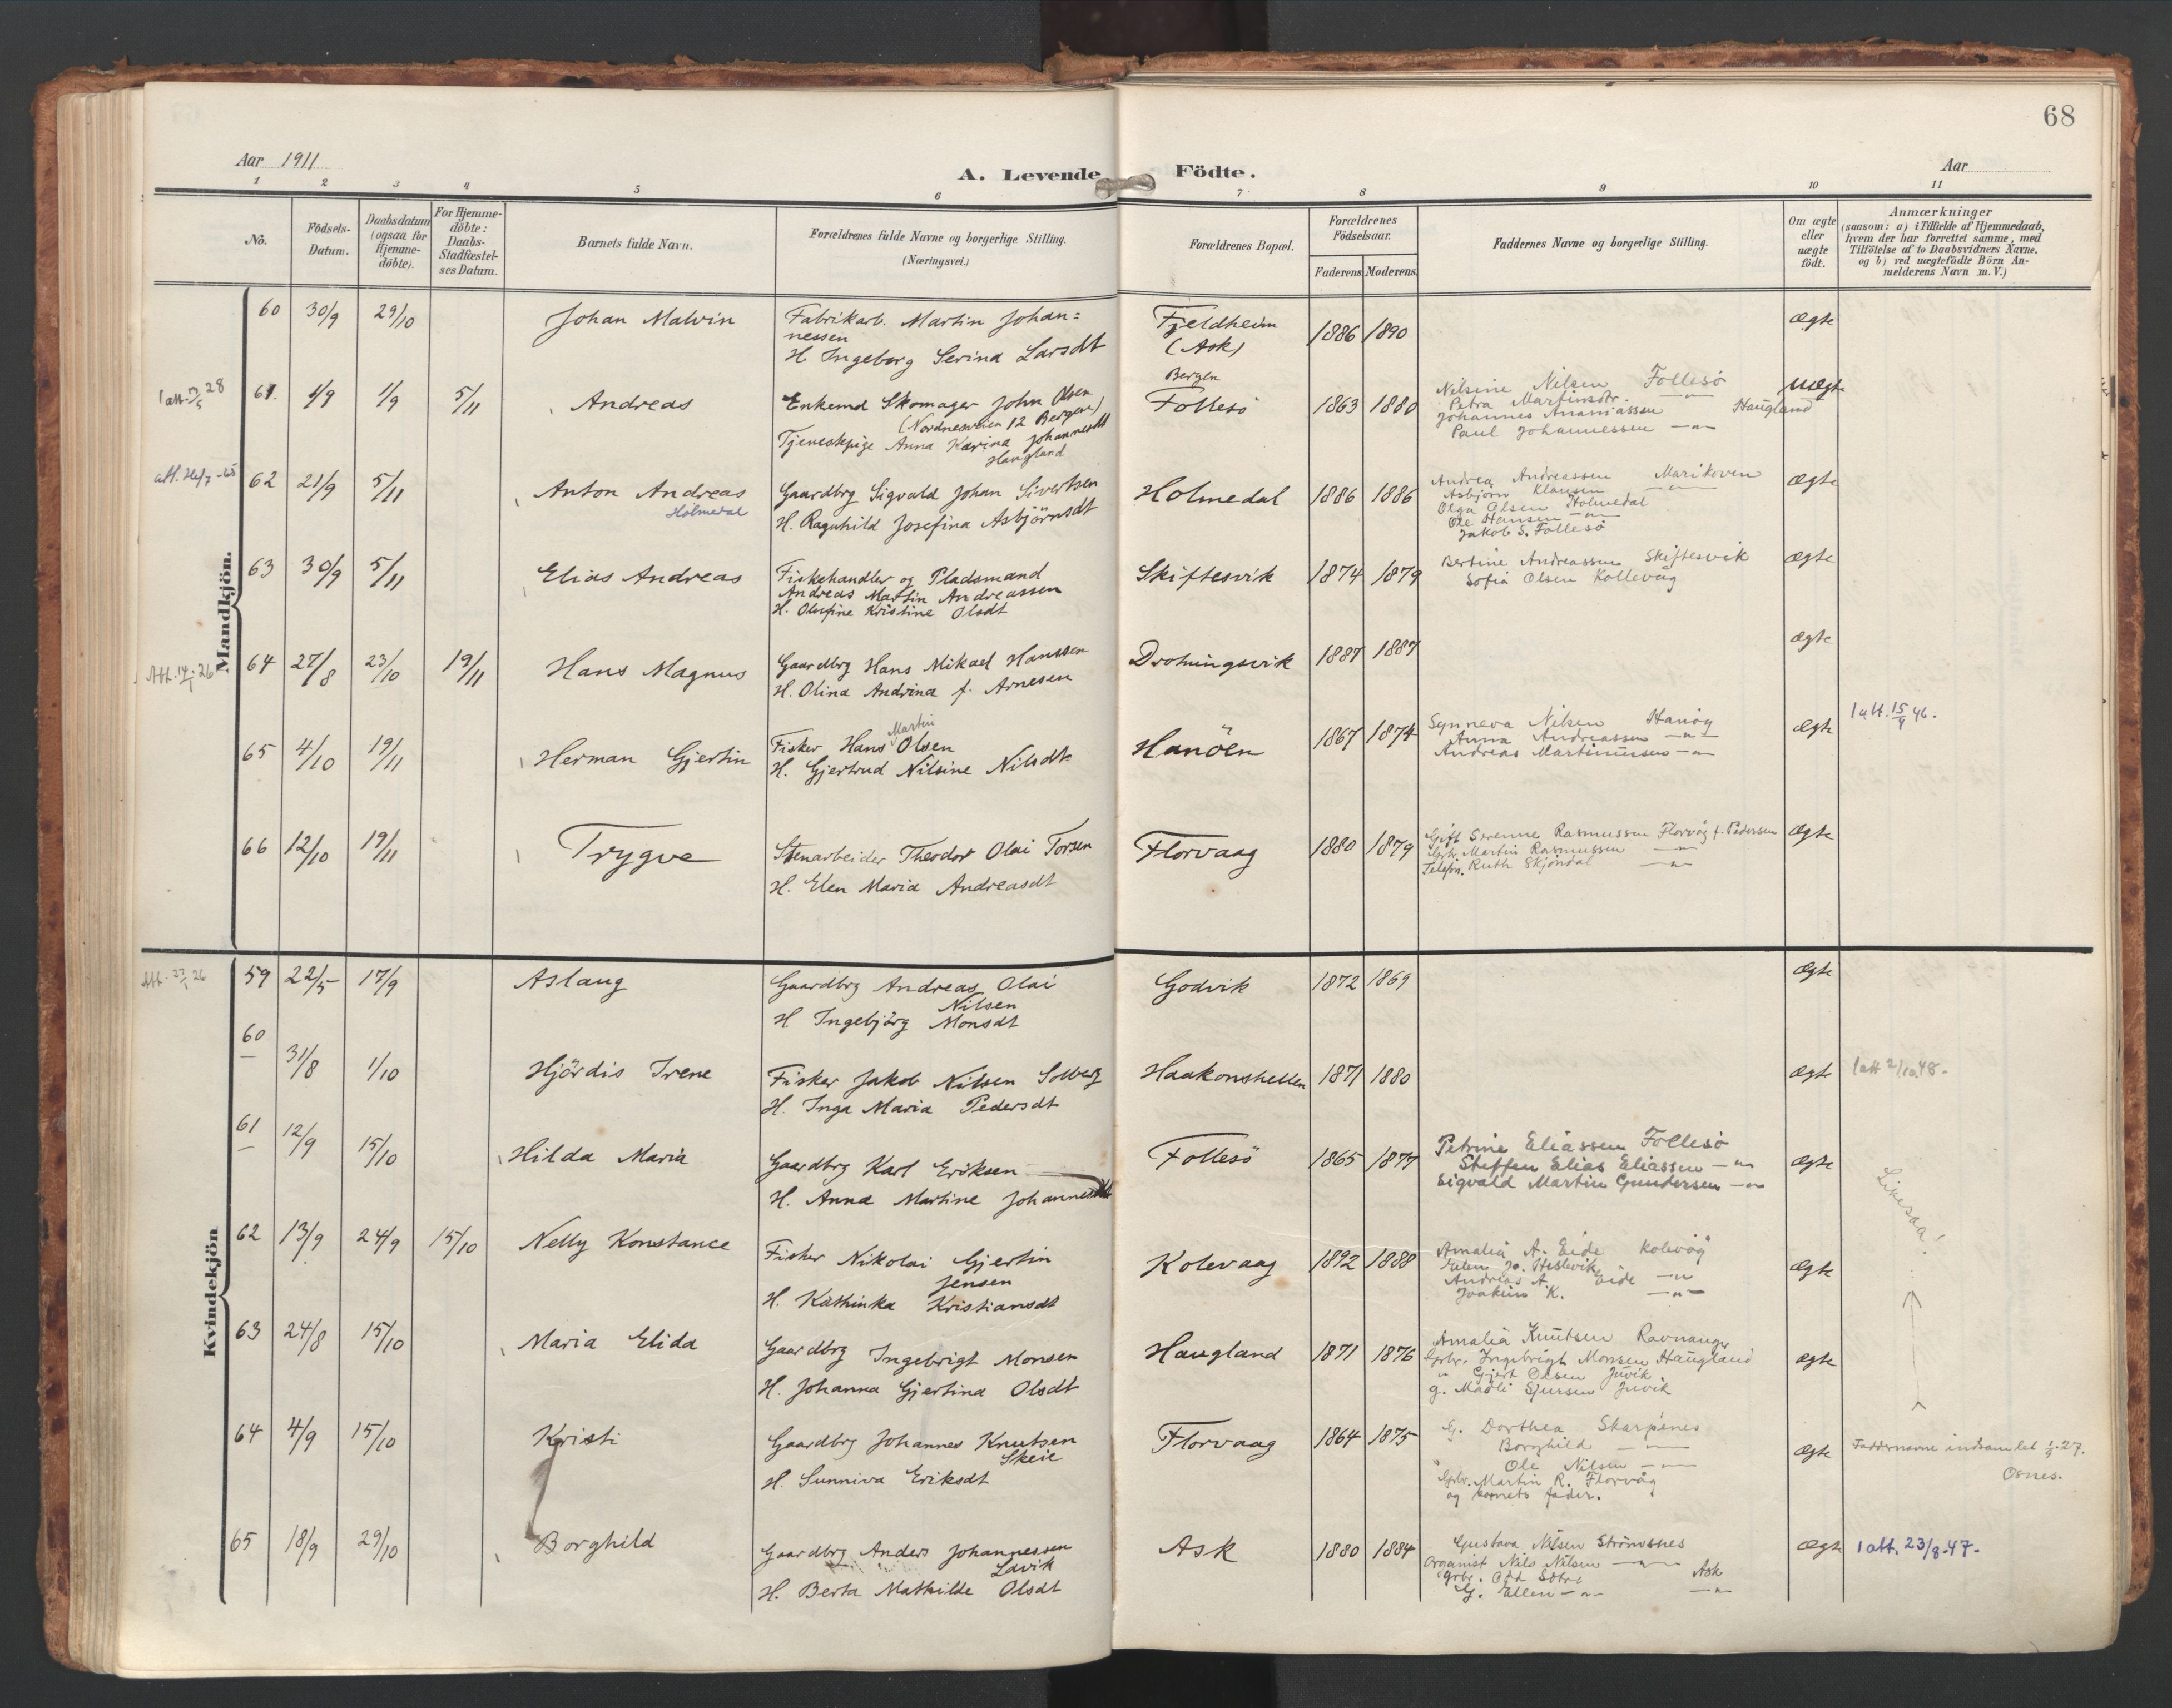 68
Aar 1911
A. Levende Födte.
Aar
1 2 3 4 5 6 7 8 9 10 11
No.
Födsels-Datum.
Daabsdatum (ogsaa for Hjemme-döbte).
For Hjemme-döbte: Daabs-Stadfæstel-ses Datum.
Barnets fulde Navn.
Forældrenes fulde Navne og borgerlige Stilling. (Næringsvei.)
Forældrenes Bopæl.
Forældrenes Födselsaar.
Faderens. Moderens.
Faddernes Navne og borgerlige Stilling.
Om ægte eller uægte födt.
Anmærkninger
(saasom: a) i Tilfælde af Hjemmedaab,
hvem der har forrettet samme, med
Tilföielse af to Daabsvidners Navne.
og b) ved uægtefödte Börn An-
melderens Navn m. V.)
Mandkjön.
60 30/9 29/10 Johan Malvin
Fabrikarb. Martin Johan=
nessen
H. Ingeborg Serina Larsdt
Fjeldheim
(Ask)
1886 1890 ægte
1 att. 28
61. 1/9 1/9 5/11 Andreas
Enkemd Skomager John Olsen
(Nordnesveien 12 Bergen)
Tjenestpige Anna Karina Johannesdt
Haugland
Bergen
Follesö
1863 1880
Nilsine Nilsen Follesö
Petra Martinsdtr. —"—
Johannes Ananiassen Haugland
Paul Johannessen —"—
uægte
att. 26/7-65
62 21/9 5/11 Anton Andreas
Holmedal
Gaardbrg Sigvald Johan Sivertsen
H. Ragnhild Josefina Asbjörnsdt
Holmedal
1886 1886
Andrea Andreassen Marikoven
Asbjörn Klausen —"—
Olga Olsen Holmedal
Ole Hansen —"—
Jakob S. Follesö
ægte
63 30/9 5/11 Elias Andreas
Fiskehandler og Pladsmand
Andreas Martin Andreassen
H. Olufine Kristine Olsdt
Skiftesvik
1874 1879
Bertine Andreassen Skiftesvik
Sofia Olsen Kollevåg
ægte
Att. 14/1-26
64 27/8 23/10 19/11 Hans Magnus
Gaardbrg Hans Mikael Hanssen
H. Olina Andrina f. Arnesen
Drotningsvik
1887 1887 ægte
65 4/10 19/11 Herman Gjertin
Martin
Fisker Hans Olsen
H. Gjertrud Nilsine Nilsdt
Hanöen
1867 1874
Synneva Nilsen Hanöy
Anna Andreassen —"—
Andreas Martinussen —"—
ægte
1 att. 15/9 46.
66 12/10 19/11 Trygve
Stenarbeider Theodor Olai Torsen
H. Elen Maria Andreasdt
Florvaag
1880 1879
Gift Serenne Rasmussen Florvåg f. Pedersen
Grbr. Martin Rasmussen —"—
Telefon. Ruth Skjöndal —"—
ægte
Kvindekjön
Att. 23/1 26
59 22/5 17/9 Aslaug
Gaardbrg Andreas Olai
Nilsen
H Ingebjörg Monsdt
Godvik
1872 1869 ægte
60 31/8 1/10 Hjördis Irene
Fisker Jakob Nilsen Solberg
H. Inga Maria Pedersdt
Haakonshellen
1871 1880 ægte
1 att 2/10.48.
61 12/9 15/10 Hilda Maria
Gaardbrg Karl Eriksen
H. Anna Martine Johannesdt
Follesö
1865 1877
Petrine Eliassen Follesö
Steffen Elias Eliassen —"—
Sigvald Martin Gundersen —"—
ægte
Likesaa!
62 13/9 24/9 15/10 Nelly Konstance
Fisker Nikolai Gjertin
Jensen
H. Kathinka Kristiansdt
Kolevaag
1892 1888
Amalia A. Eide Kolevåg
Elen Jo. Hestevik
Andreas A. Eide —"—
Joakim K. —"—
ægte
63 24/8 15/10 Maria Elida
Gaardbrg Ingebrigt Monsen
H. Johanna Gjertina Olsdt
Haugland
1871 1876
Amalia Knutsen Ravnanger
Grbr. Ingebrigt Monsen Haugland
" Gjert Olsen Juvik
g. Madli Sjursen Juvik
ægte
64 4/9 15/10 Kristi
Gaardbrg Johannes Knutsen
Skeie
H. Sunniva Eriksdt
Florvaag
1864 1875
G. Dorthea Skarpenes
Borghild —"—
Ole Nilsen —"—
Grbr. Martin R. Florvåg
og barnets fader.
ægte
Faddernavne indsamlet 1/9.27.
Osnes.
65 18/9 29/10 Borghild
Gaardbrg Anders Johannessen
Lavik
H. Berta Mathilde Olsdt
Ask
1880 1884
Gustava Nilsen Strömsnes
Organist Nils Nilsen —"—
grbr. Odd Ask
G. Ellen —"— —"—
ægte
1 att. 23/8-47-